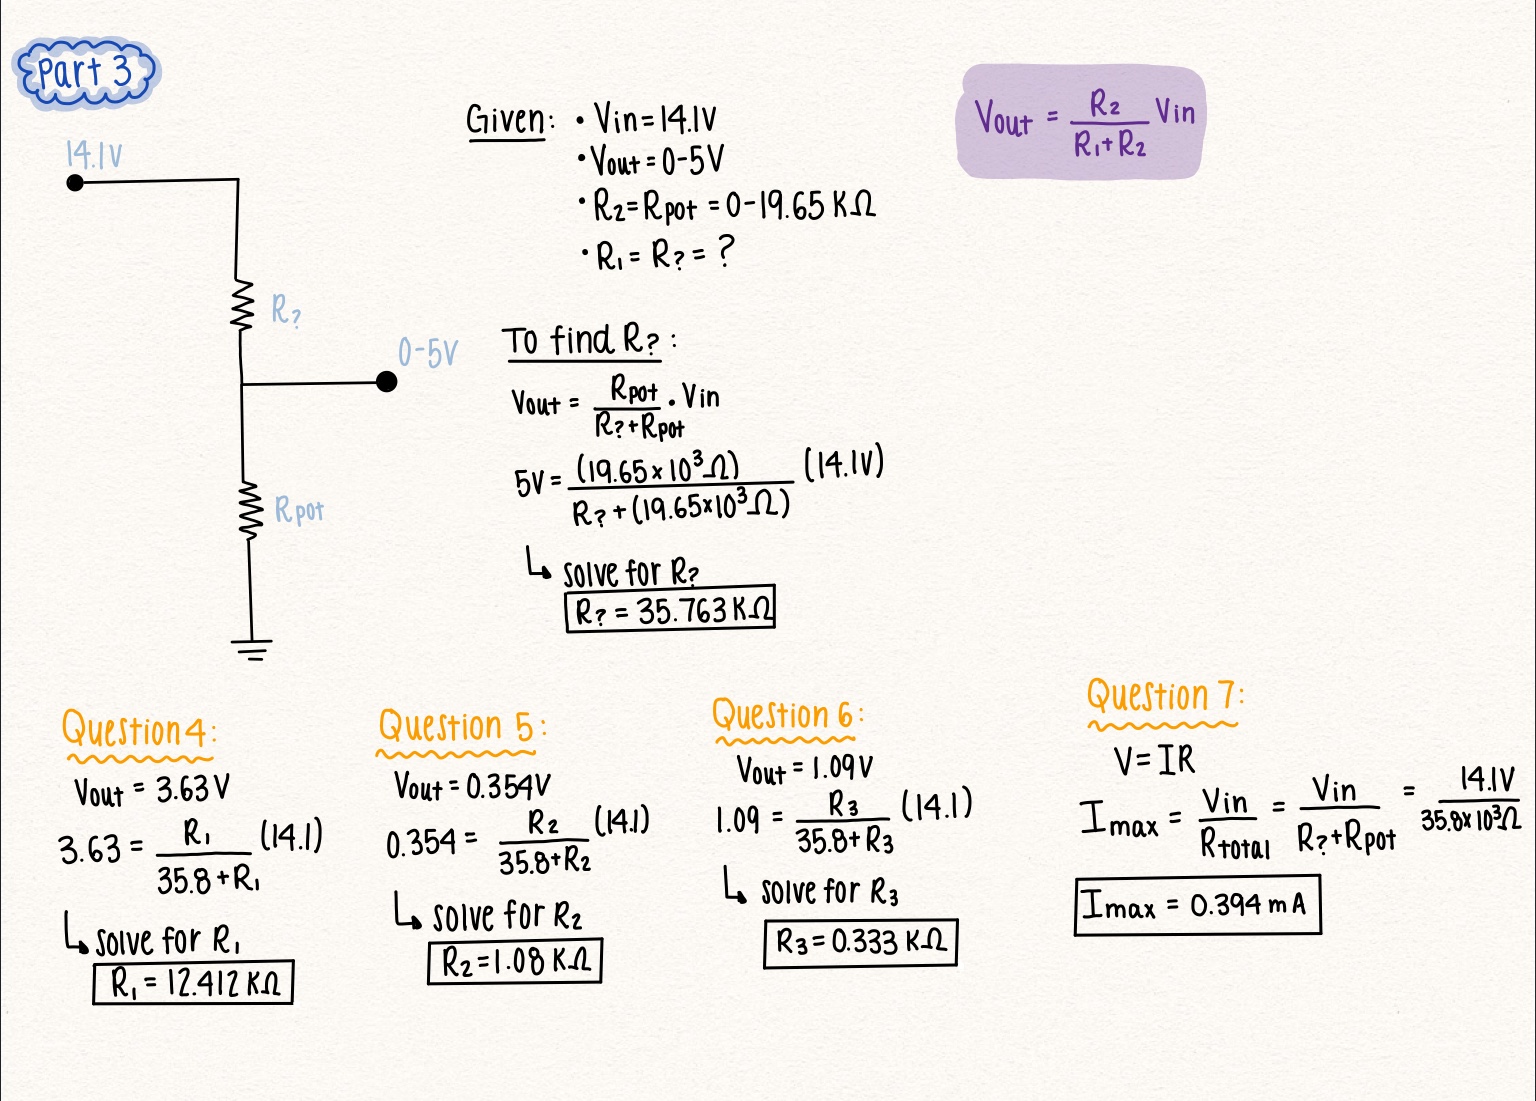 Part 3
14.1V
R?
0-5V
Rpot
Given: • Vin = 14.1V
• Vout = 0-5V
• R2 = Rpot = 0-19.65 KΩ
• R1 = R? = ?
Vout = R2 / R1+R2 Vin
To find R? :
Vout = Rpot / R?+Rpot • Vin
5V = (19.65 x 10³Ω) / R? + (19.65x10³Ω) (14.1V)
↳ solve for R?
R? = 35.763 KΩ
Question 4:
Vout = 3.63 V
3.63 = R1 / 35.8 + R1 (14.1)
↳ solve for R1
R1 = 12.412 KΩ
Question 5:
Vout = 0.354V
0.354 = R2 / 35.8+R2 (14.1)
↳ solve for R2
R2 = 1.08 KΩ
Question 6:
Vout = 1.09V
1.09 = R3 / 35.8+ R3 (14.1)
↳ solve for R3
R3 = 0.333 KΩ
Question 7:
V = IR
Imax = Vin / Rtotal = Vin / R?+Rpot = 14.1V / 35.8x10³Ω
Imax = 0.394 mA